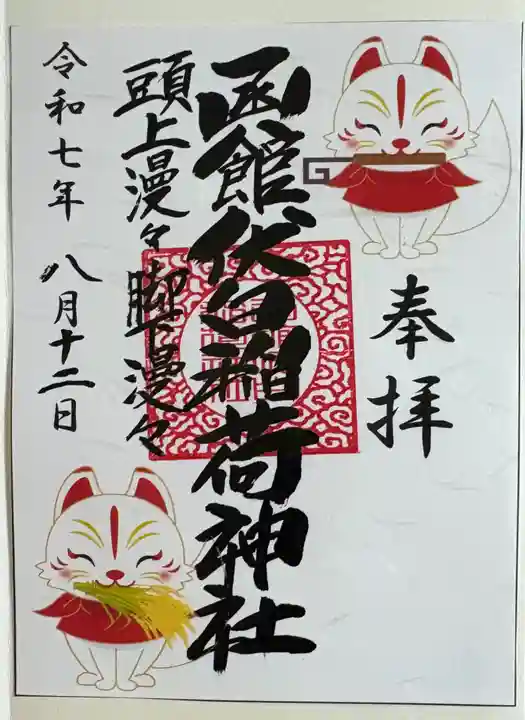 奉拝
函館伏白稲荷神社
頭上漫々脚下漫々
令和七年 八月十二日